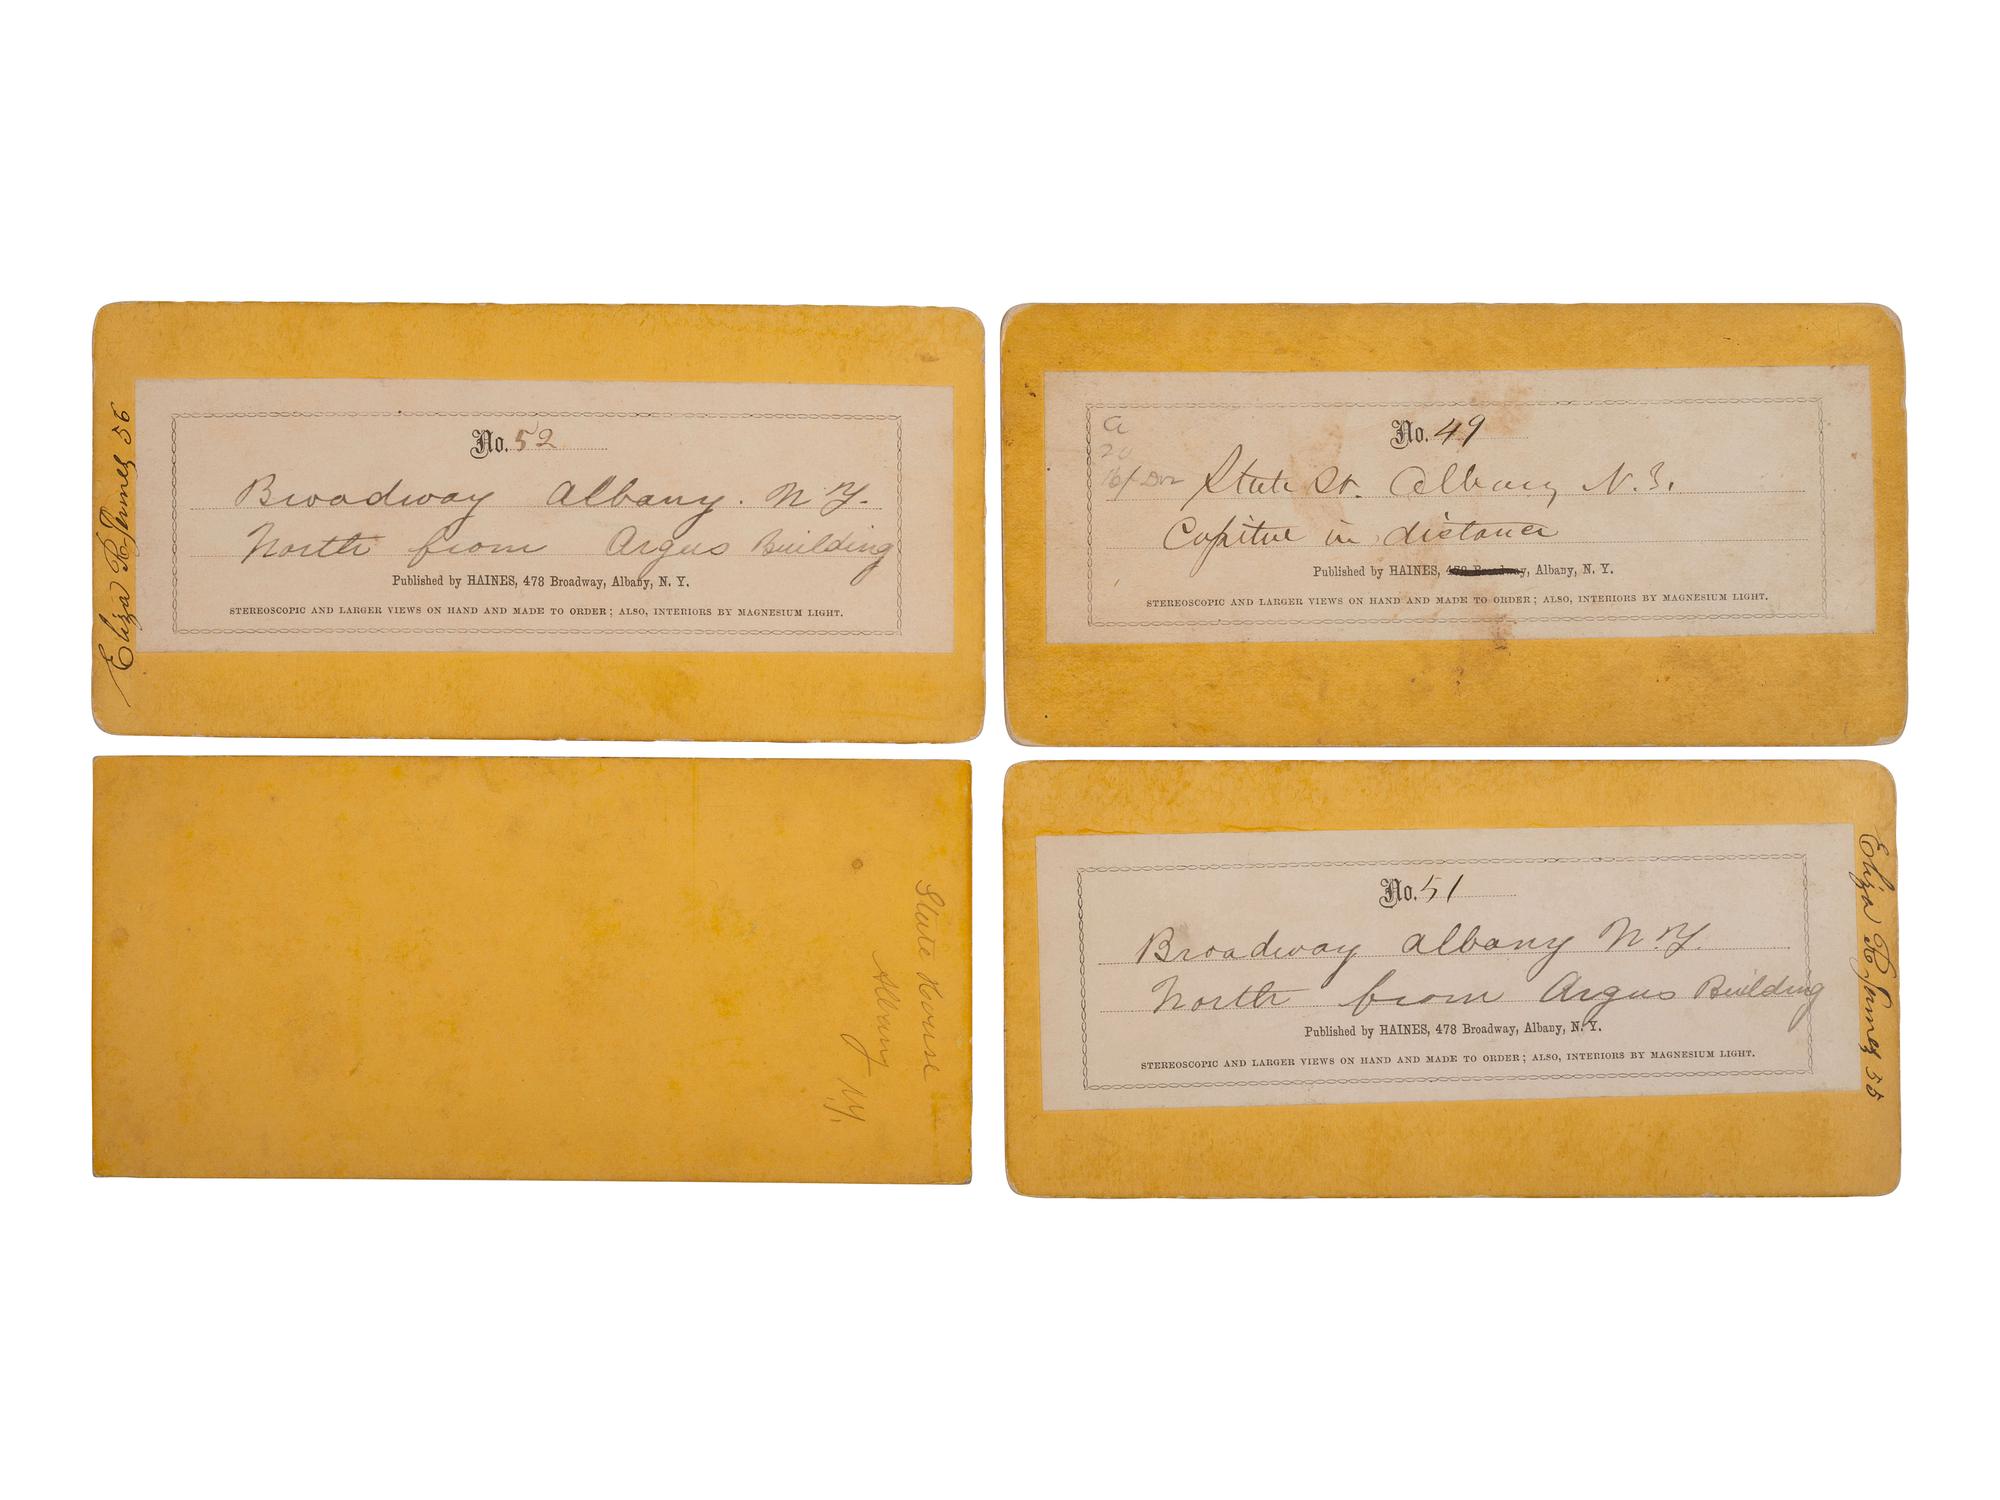 No. 52
Broadway Albany. N.Y.
North from Argus Building
Published by HAINES, 478 Broadway, Albany, N. Y.
STEREOSCOPIC AND LARGER VIEWS ON HAND AND MADE TO ORDER; ALSO, INTERIORS BY MAGNESIUM LIGHT.
Eliza R 56
No. 49
State St. Albany N.Y.
Capitol in distance
Published by HAINES, 478 Broadway, Albany, N. Y.
STEREOSCOPIC AND LARGER VIEWS ON HAND AND MADE TO ORDER; ALSO, INTERIORS BY MAGNESIUM LIGHT.
State House
Albany
N.Y.
No. 51
Broadway Albany N.Y.
North from Argus Building
Published by HAINES, 478 Broadway, Albany, N. Y.
STEREOSCOPIC AND LARGER VIEWS ON HAND AND MADE TO ORDER; ALSO, INTERIORS BY MAGNESIUM LIGHT.
Eliza R 55